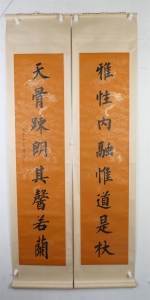 雅性內融惟道是杖
天骨踈朗其馨若蘭